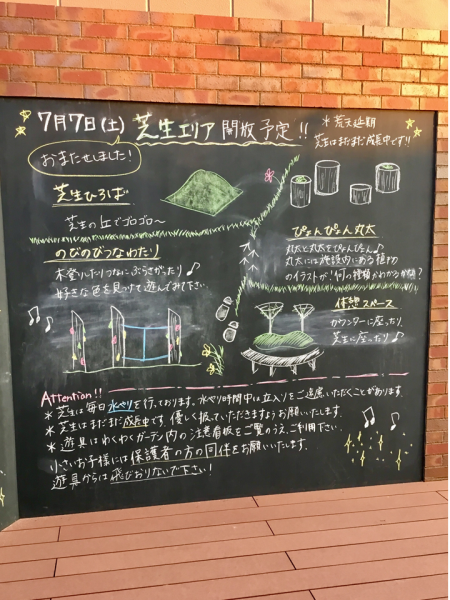 7月7日(土) 芝生エリア 開放予定!!
*荒天延期
芝生はまだまだ成長中です!!
おまたせしました!
芝生ひろば
芝生の丘でゴロゴロ〜
のびのびつなわたり
木登りしたりつなにぶらさがったり♪
好きな色を見つけて遊んでみて下さい
ぴょんぴょん丸太
丸太と丸太をぴょんぴょん♪
丸太には施設内にある植物
のイラストが!何の種類かわかるかな?
休憩スペース
カウンターに座ったり
芝生に座ったり♪
Attention!!
*芝生は毎日水やりを行っております。水やり時間中は立入りをご遠慮いただくことがあります。
*芝生はまだまだ成長中です。優しく扱っていただきますようお願いいたします。
*遊具はわくわくガーデン内の注意看板をご覧のうえ、ご利用下さい。
小さいお子様には保護者の方の同伴をお願いいたします。
遊具からは飛びおりないで下さい!